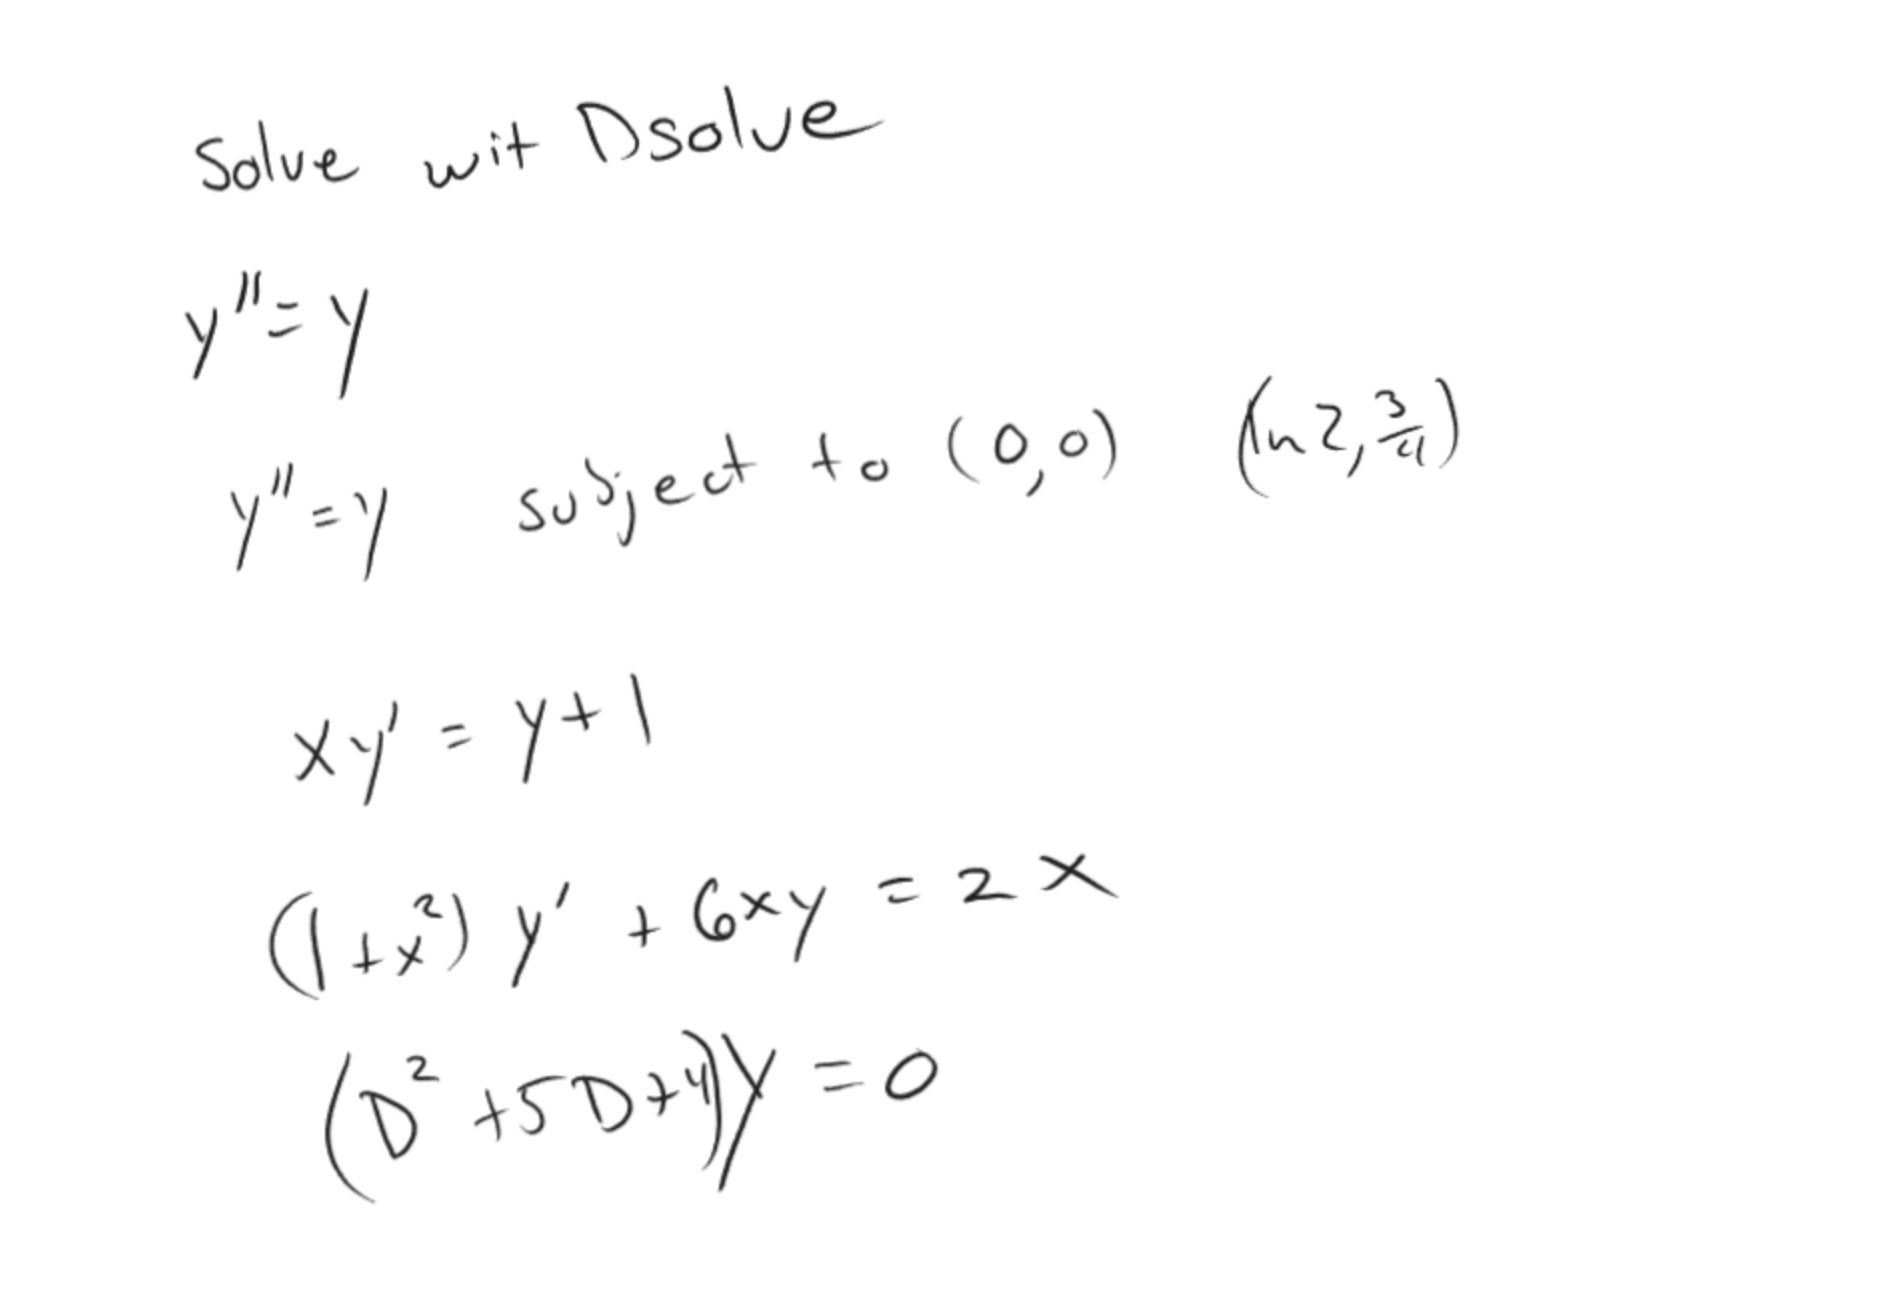 Solve wit Dsolve
y'' = y
y'' = y subject to (0,0) (ln 2, 3/4)
xy' = y + 1
(1+x²) y' + 6xy = 2x
(D² + 5D + 4)y = 0